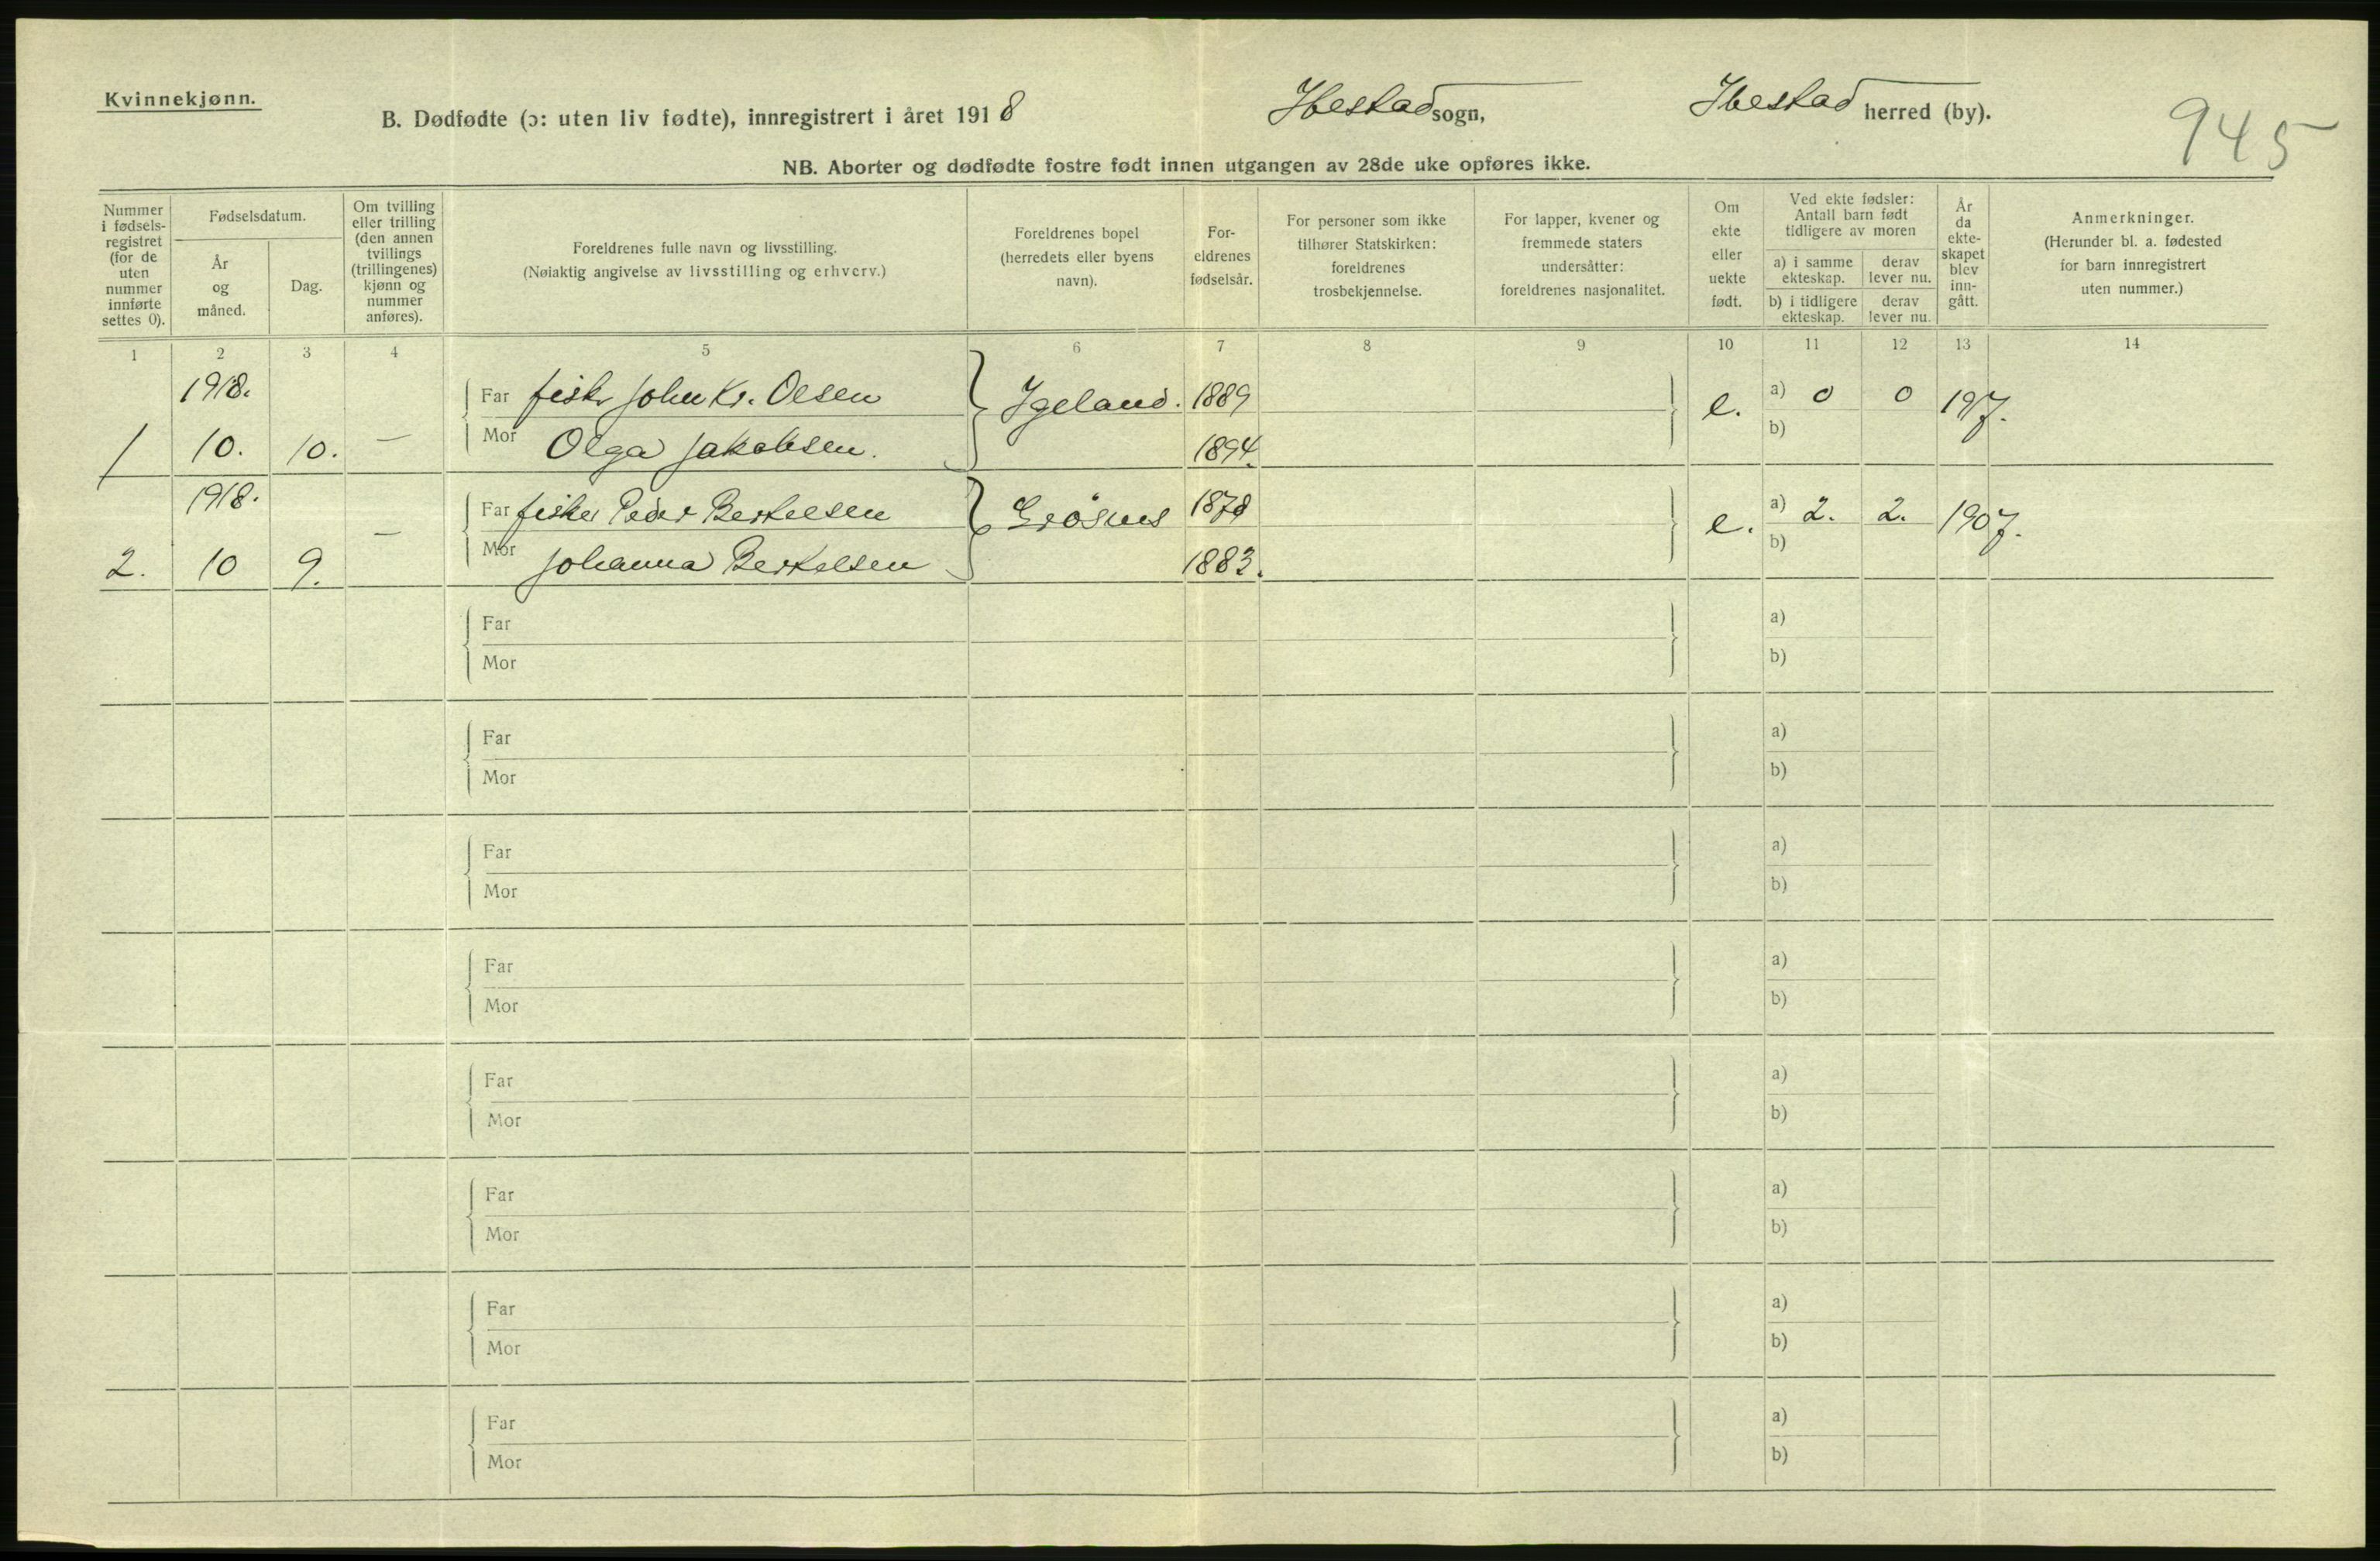 Kvinnekjønn.
B. Dødfødte (ɔ: uten liv fødte), innregistrert i året 1918 Ibestad sogn, Ibestad herred (by).
945
NB. Aborter og dødfødte fostre født innen utgangen av 28de uke opføres ikke.
Nummer i fødsels-registret (for de uten nummer innførte settes 0).
Fødselsdatum.
År og måned.
Dag.
Om tvilling eller trilling (den annen tvillings (trillingenes) kjønn og nummer anføres).
Foreldrenes fulle navn og livsstilling.
(Nøiaktig angivelse av livsstilling og erhverv.)
Foreldrenes bopel (herredets eller byens navn).
For-eldrenes fødselsår.
For personer som ikke tilhører Statskirken: foreldrenes trosbekjennelse.
For lapper, kvener og fremmede staters undersåtter: foreldrenes nasjonalitet.
Om ekte eller uekte født.
Ved ekte fødsler: Antall barn født tidligere av moren
a) i samme ekteskap.
derav lever nu.
b) i tidligere ekteskap.
derav lever nu.
År da ekte-skapet blev inn-gått.
Anmerkninger.
(Herunder bl. a. fødested for barn innregistrert uten nummer.)
1 2 3 4 5 6 7 8 9 10 11 12 13 14
1918. Far fisker John Kr. Olsen Igeland. 1889 e. a) 0 0 197.
1 10. 10. — Mor Olga Jakobsen. 1894. b)
1918. Far fisker Peder Bertelsen Grøsnes 1878 e. a) 2. 2. 1907.
2. 10 9. — Mor Johanna Bertelsen 1883. b)
Far a)
Mor b)
Far a)
Mor b)
Far a)
Mor b)
Far a)
Mor b)
Far a)
Mor b)
Far a)
Mor b)
Far a)
Mor b)
Far a)
Mor b)